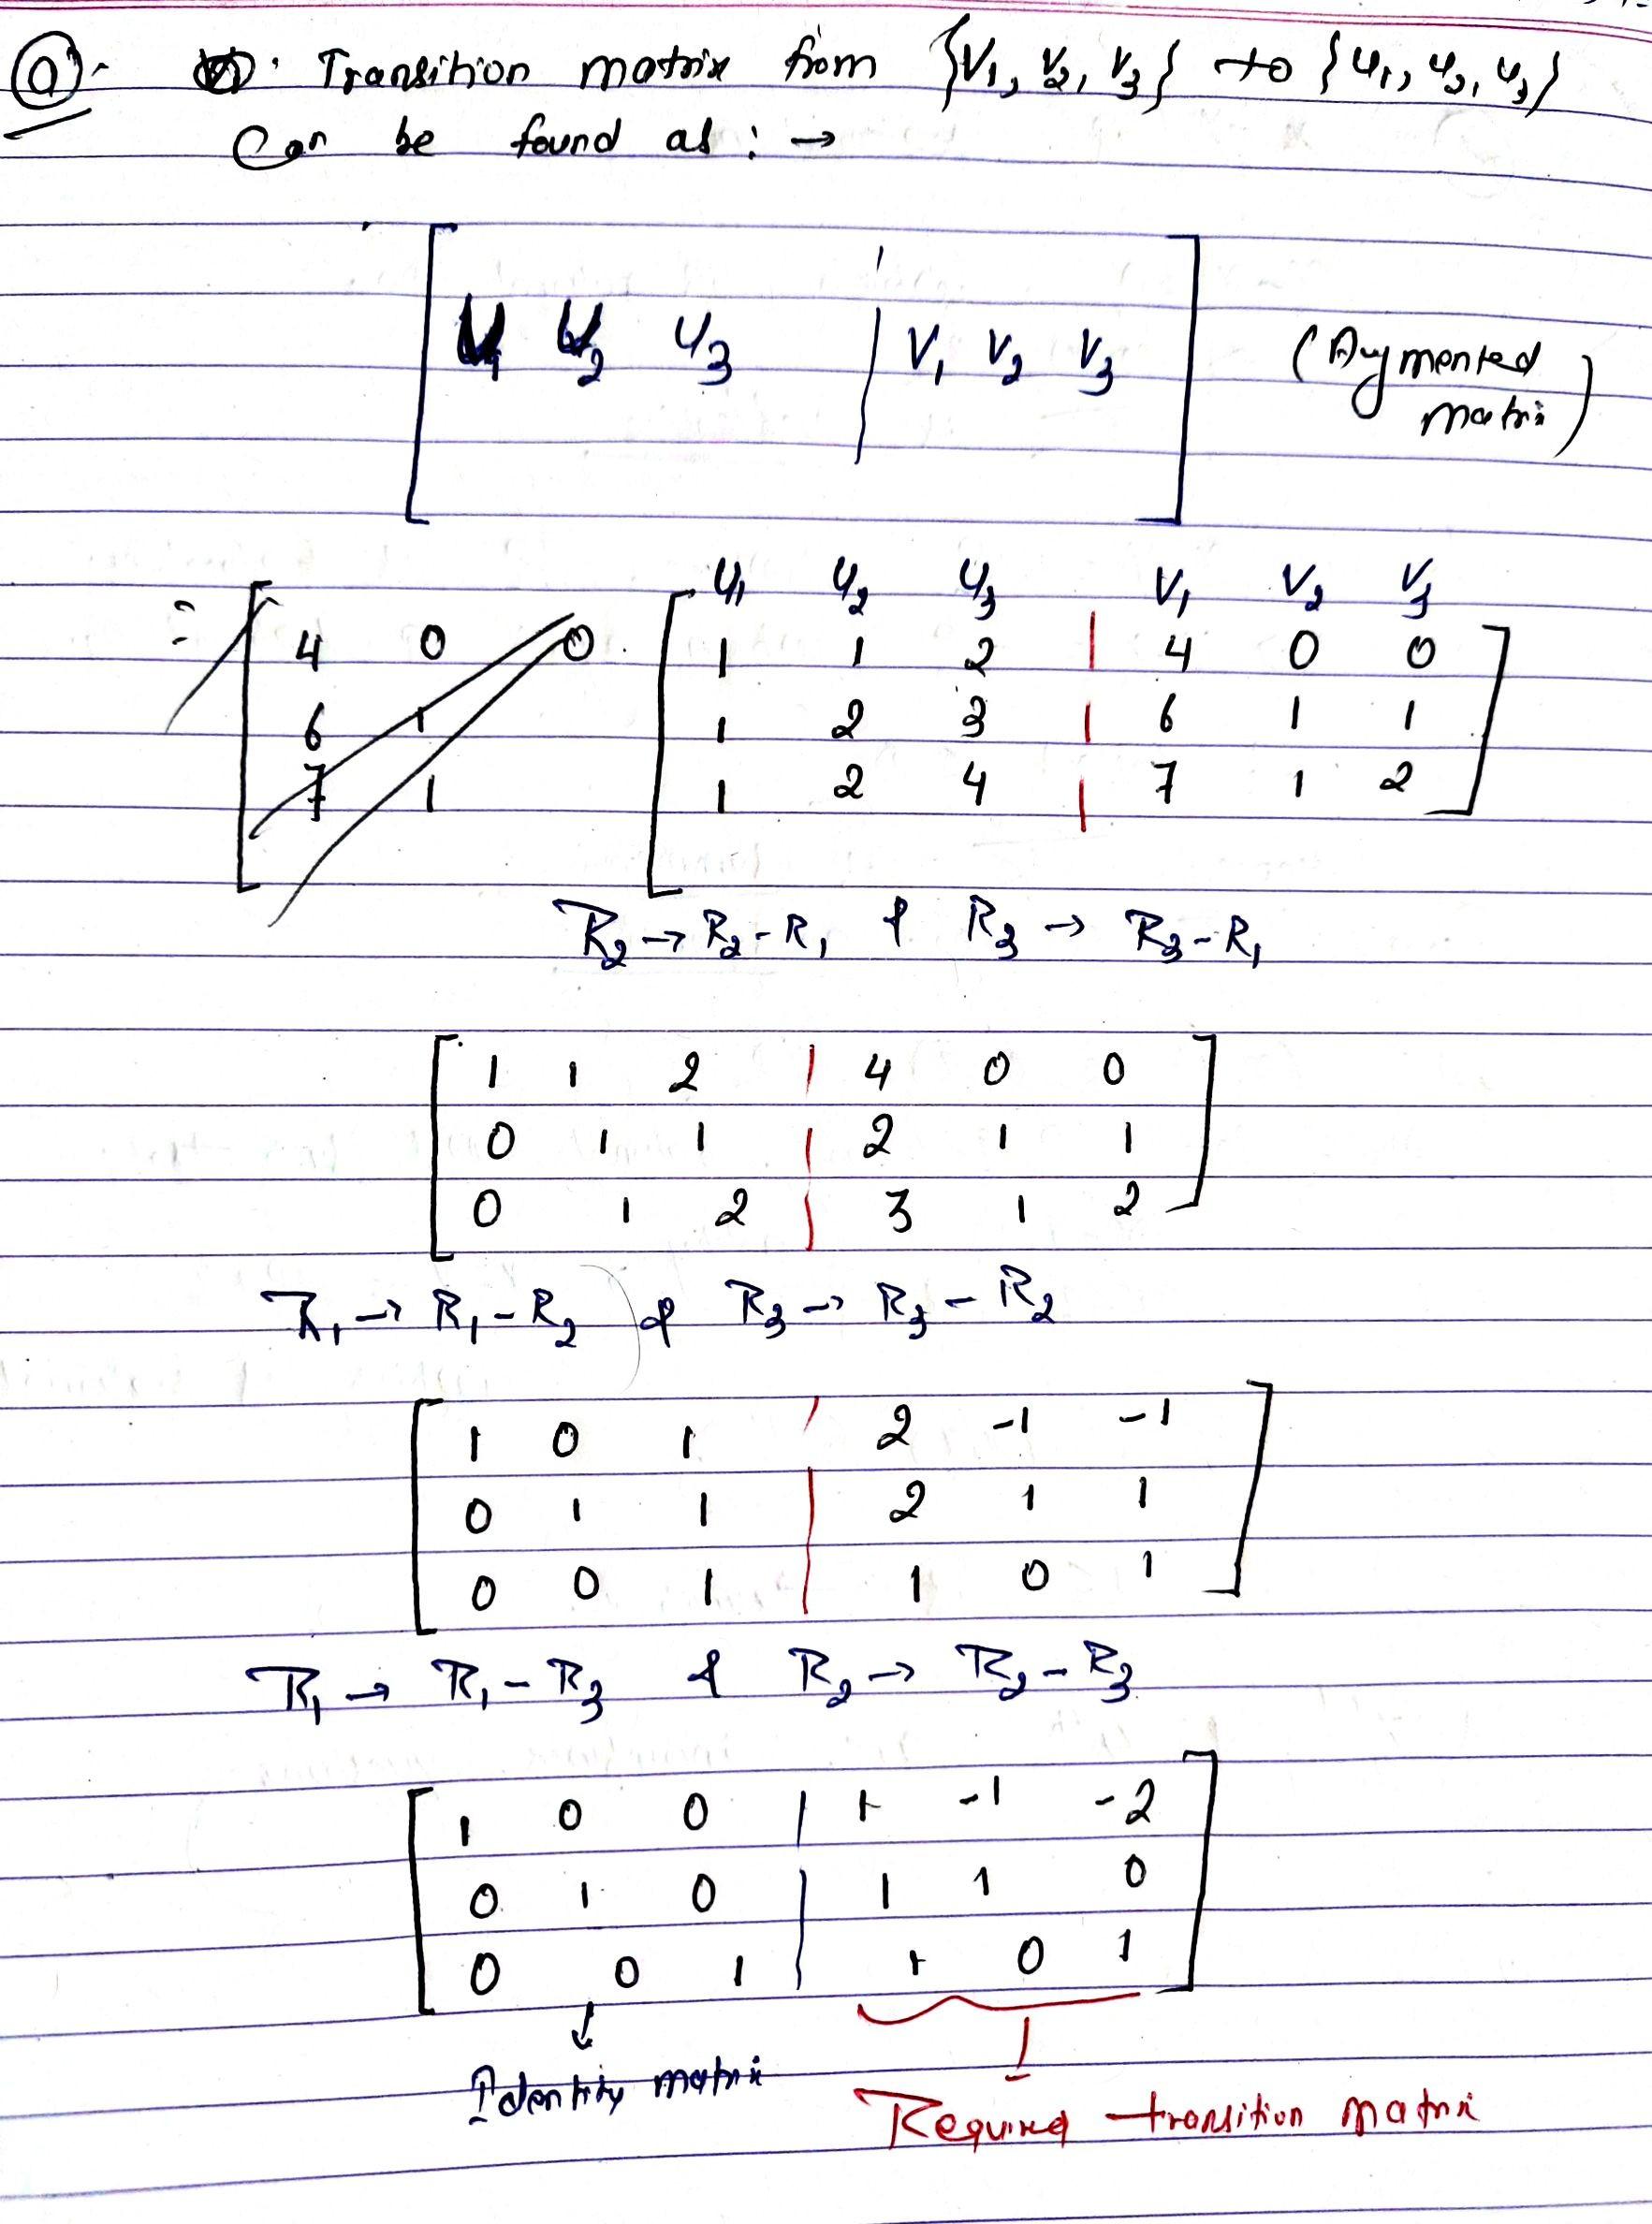 (a). Transition matrix from {V1, V2, V3} to {u1, u2, u3}
Can be found as : →
[ u1 u2 u3 | V1 V2 V3 ] (Augmented
matrix)
u1 u2 u3 V1 V2 V3
= [ 4 0 0 [ 1 1 2 | 4 0 0 ]
6 1 1 2 3 | 6 1 1
7 1 1 2 4 | 7 1 2
R2 → R2 - R1 & R3 → R3 - R1
[ 1 1 2 | 4 0 0 ]
0 1 1 | 2 1 1
0 1 2 | 3 1 2
R1 → R1 - R2 & R3 → R3 - R2
[ 1 0 1 | 2 -1 -1 ]
0 1 1 | 2 1 1
0 0 1 | 1 0 1
R1 → R1 - R3 & R2 → R2 - R3
[ 1 0 0 | 1 -1 -2 ]
0 1 0 | 1 1 0
0 0 1 | 1 0 1
↓
Identity matrix
Required transition matrix